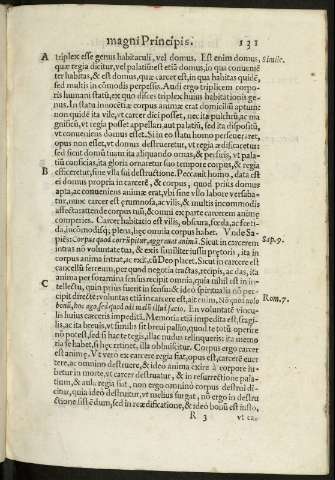 magni Principis. 131
A triplex esse genus habitaculi, vel domus. Est enim domus, Simile.
quæ regia dicitur, vel palatiũ: est etiã domus, in qua conueniẽ
ter habitas, & est domus, quæ carcer est, in qua habitas quidẽ,
sed multis in cõmodis perpessis. Audi ergo triplicem cor-
poris humani statũ, ex quo disces triplex humi habitationis ge-
nus. In statu innocẽtiæ corpus animæ erat domiciliũ aptum:
non quidẽ ita vile, vt carcer dici posset, nec ita pulchrũ, ac ma
gnificũ, vt regia posset appellari, aut palatiũ, sed ita dispositũ,
vt conueniens domus esset. Si in eo statu homo perseueraret,
opus non esset, vt domus destrueretur, vt regia ædificaretur:
sed sicut domũ tuam ita aliquando ornas, & perfuis, vt pala-
tiũ conficias, ita gloria ornaretur suo tempore corpus, & regia
B efficeretur, sine vlla sui destructione. Peccauit homo, data est
ei domus propria in carcerẽ, & corpus, quod prius domus
apta, ac conueniens animæ erat, vbi sine vllo labore versaba-
tur, nunc carcer est ęrumnosa, ac vilis, & multis incommodis
affecta: attende corpus tuũ, & omni ex parte carcerem animæ
comperies. Carcer habitatio est vilis, obscura, fœda, ac fœti-
da, incõmodisq; plena, hęc omnia corpus habet. Vnde Sa-
piẽs: Corpus quod corrũpitur, aggrauat animã. Sicut in carcerem Sap.9.
intras nõ voluntate tua, & exis similiter iussu prętoris, ita in
corpus anima intrat, ac exit, cũ Deo placet. Sicut in carcere est
cancellũ ferreum, per quod negotia tractas, recipis, ac das, ita
anima per foramina sensus recipit omnia, quia nihil est in in-
C tellectu, quin prius fuerit in sensu: & ideo spiritualia nõ per-
cipit directè voluntas etiã in carcere est, ait enim, Nõ quod volo Rom.7.
bonũ, hoc ago, sed quod odi malũ illud facio. En voluntatẽ vincu-
lis huius carceris impeditã. Memoria etiã impedita est, fragi-
lis, ac ita breuis, vt similis sit breui pallio, quod te totũ operire
nõ potest, sed si hac te tegis, illac nudus relinqueris: ita memo
ria se habet, si hęc retinet, illa obliuiscitur. Corpus ergo carcer
est animę. Vt verò ex carcere regia fiat, opus est, carcerẽ euer
tere, ac omnino destruere, & ideo anima exire à corpore iu-
betur in morte, vt carcer destruatur, & in resurrectione pala-
tium, & aula regia fiat, non ergo omninò corpus destrui di-
citur, quia ideò destruitur, vt melius surgat, nõ ergo in destru
ctione sistẽdum, sed in reædificatione, & ideò bonũ est iusto,
R 3 vt cor-